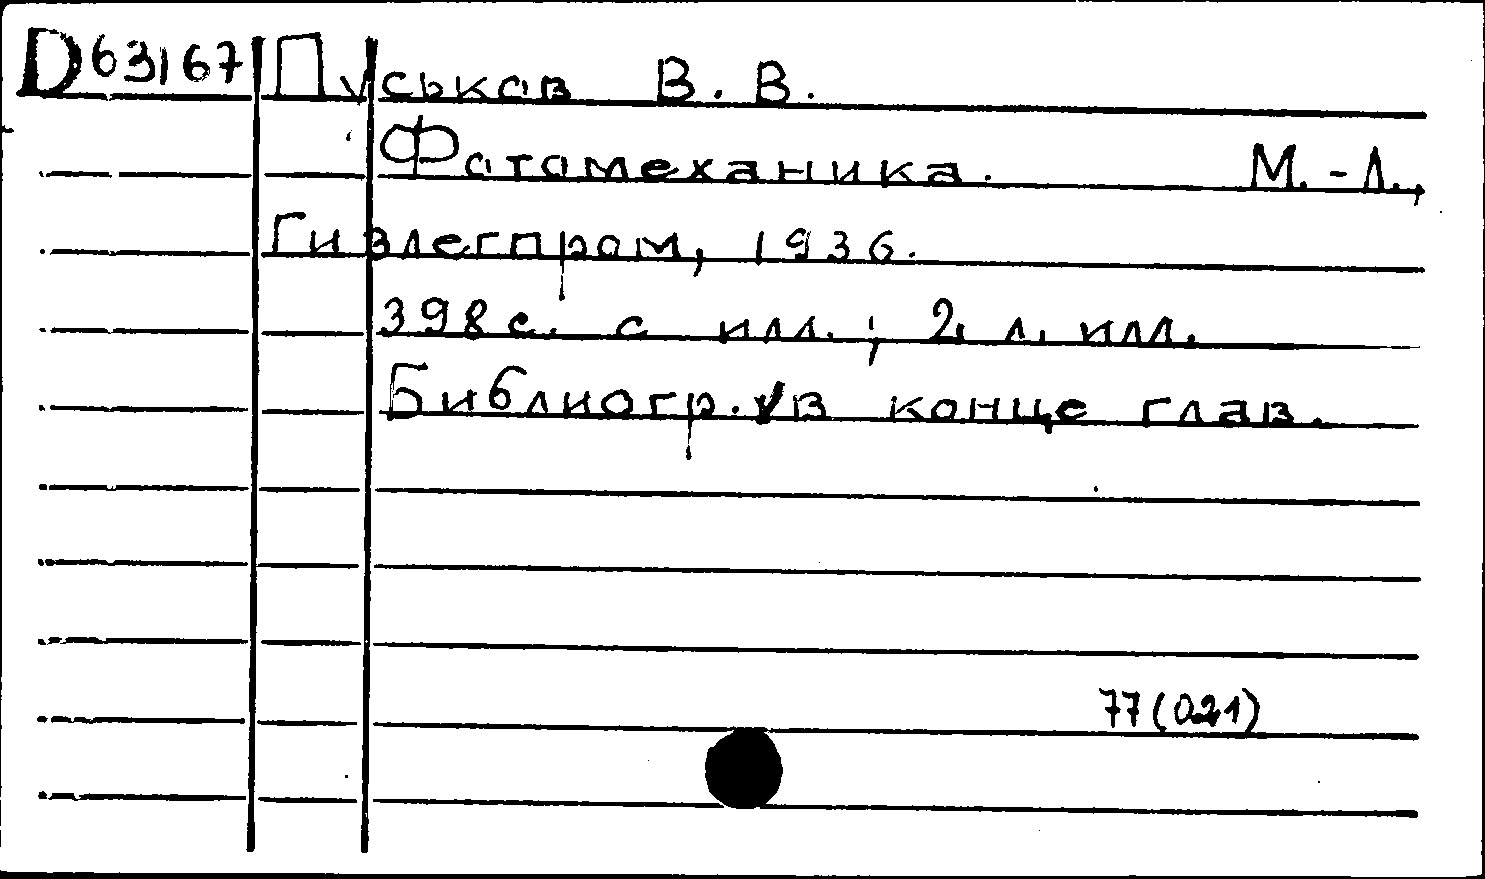 D63167 Пуськов В. В.
Фотомеханика. М.-Л.,
Гизлегпром, 1936.
398 с. с илл.; 2 л. илл.
Библиогр. в конце глав.
77(021)